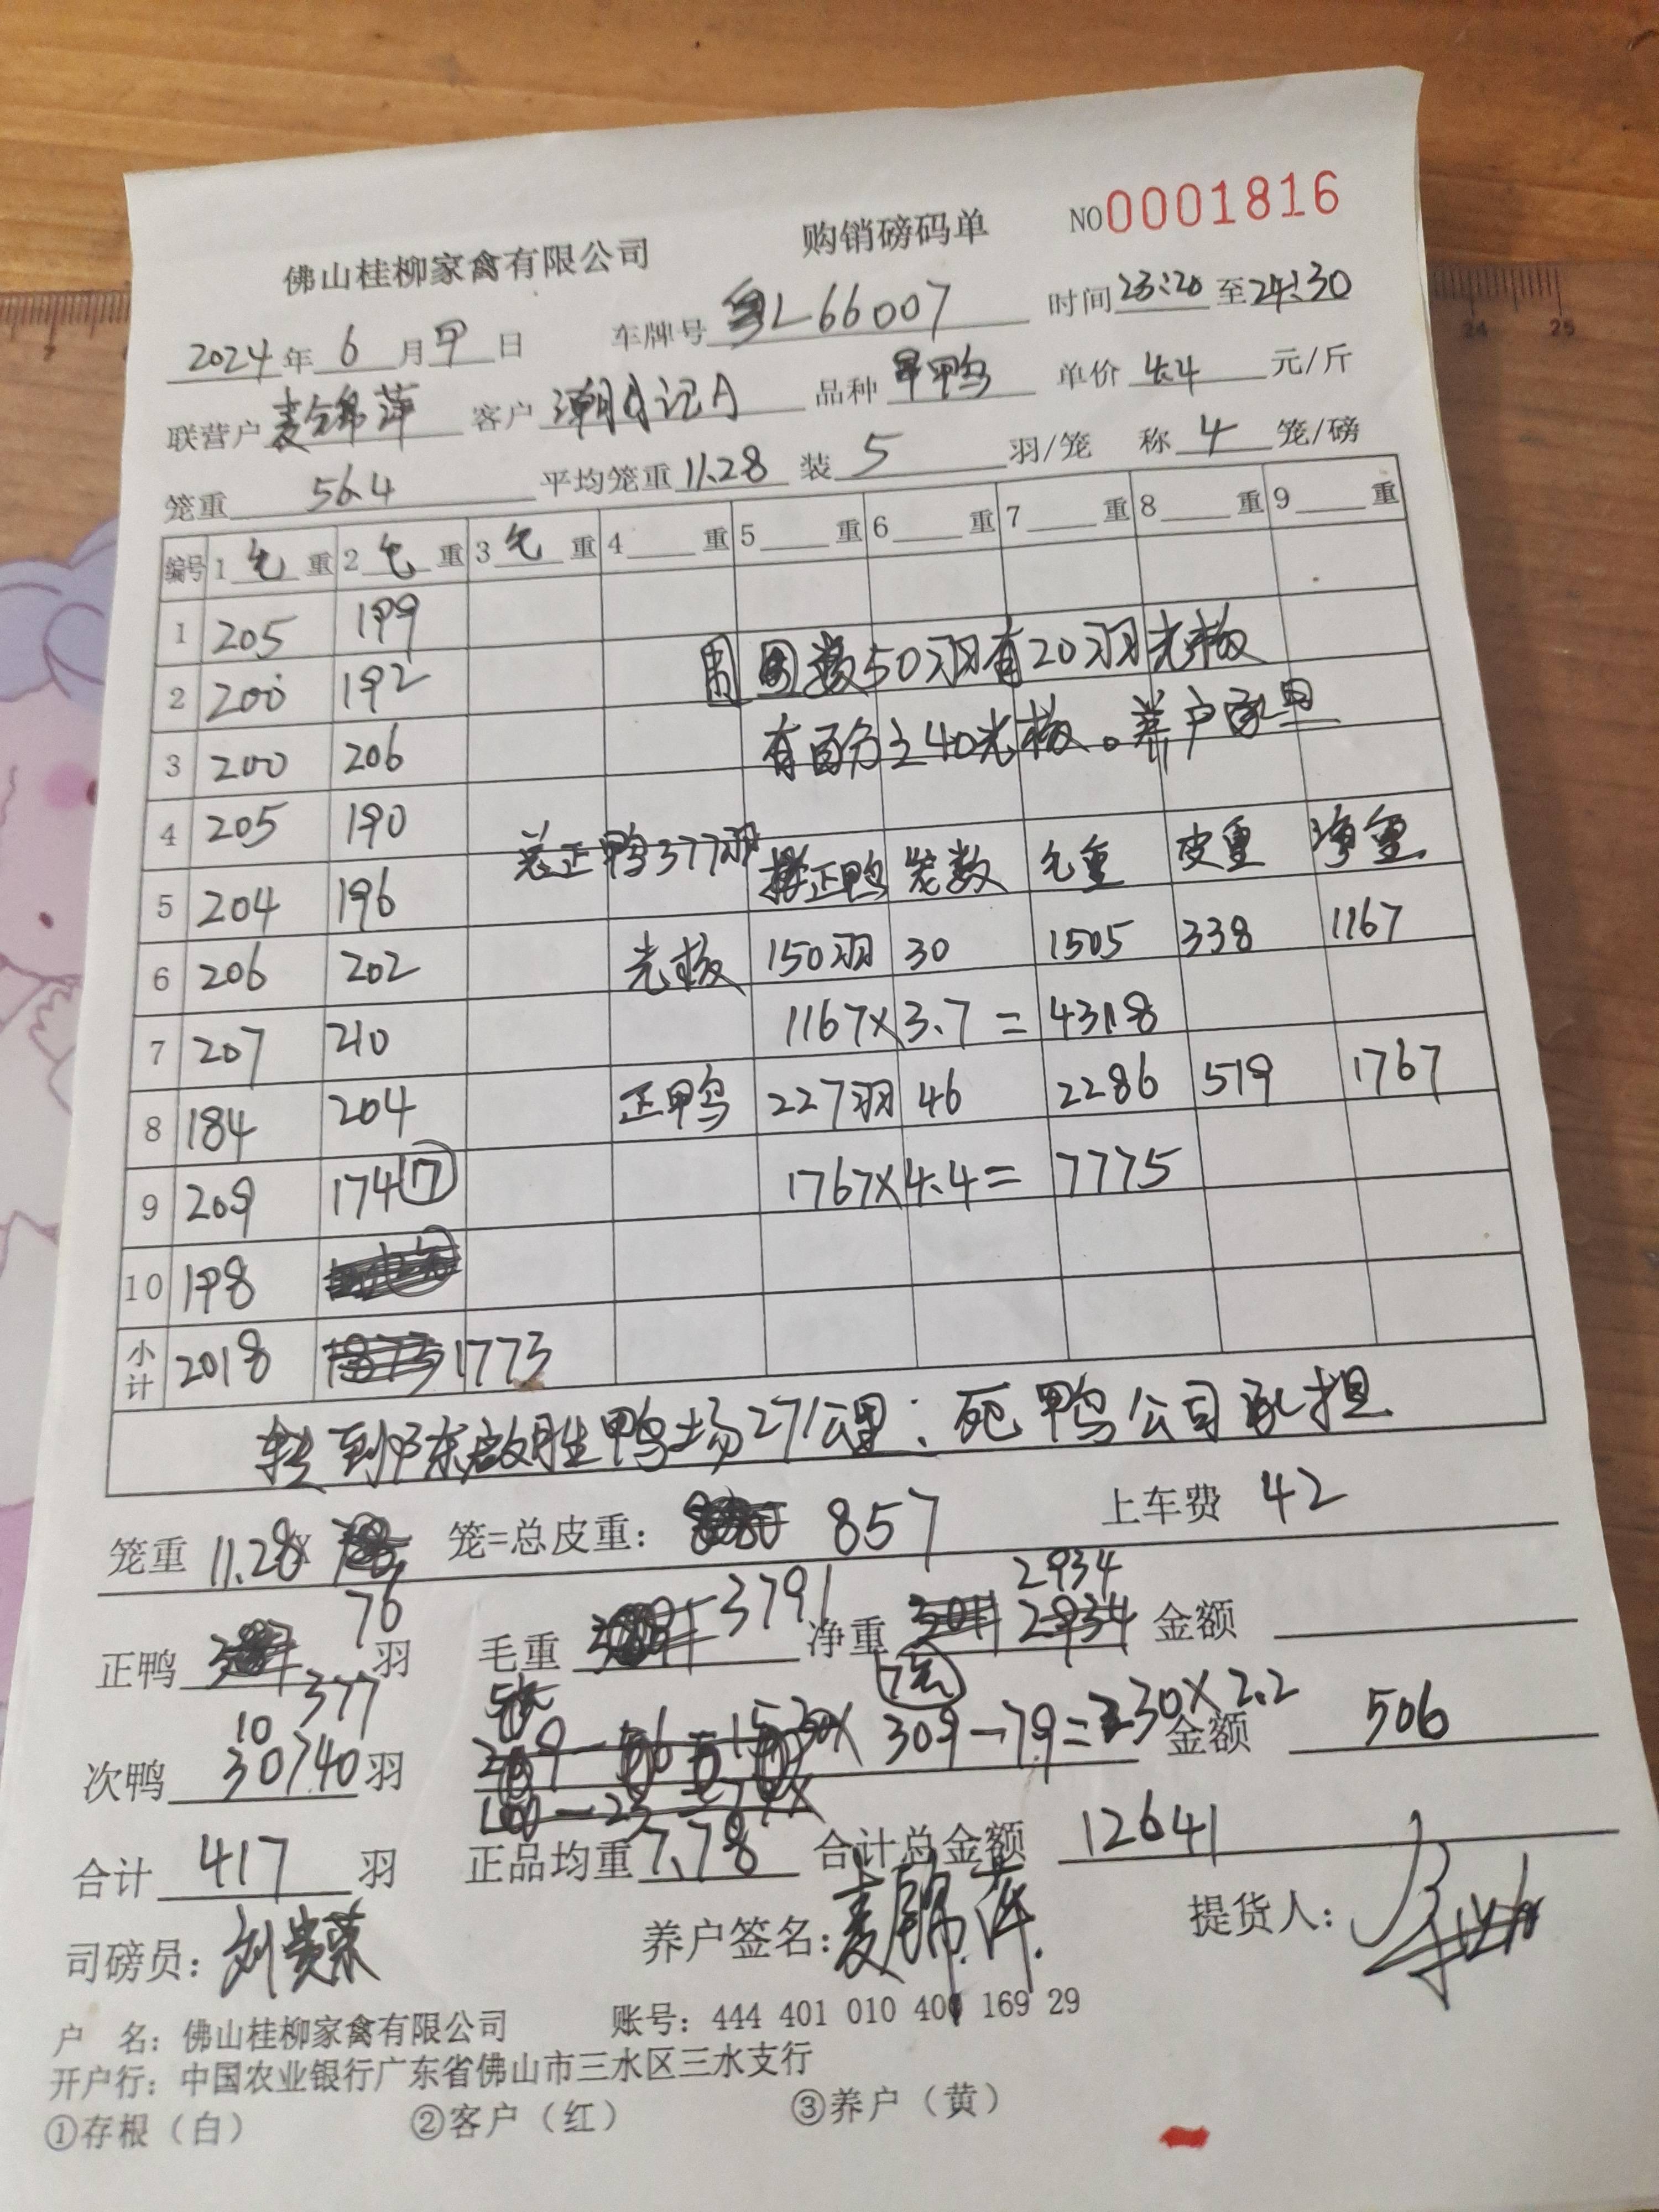 佛山桂柳家禽有限公司 购销磅码单 NO0001816
2024年6月9日 车牌号 粤L66007 时间23:20至24:30
联营户麦锦萍 客户潮记A 品种 鸭 单价4.4元/斤
笼重56.4 平均笼重11.28 装5羽/笼 称4笼/磅
编号 1毛重 2毛重 3毛重 4重 5重 6重 7重 8重 9重
1 205 199
2 200 192 数50羽有20羽光板
3 200 206 有百分之40光板。养户
4 205 190 总正鸭377羽 正鸭 笼数 毛重 皮重 净重
5 204 196
6 206 202 光板 150羽 30 1505 338 1167
7 207 210 1167×3.7=4318
8 184 204 正鸭 227羽 46 2286 519 1767
9 209 174⑦ 1767×4.4=7775
10 198
小计 2018 1773
转到陈启胜鸭场271公里:死鸭公司承担
笼重11.28×76 笼=总皮重:857 上车费 42
正鸭377羽 毛重3791 净重2934 金额
次鸭10 30/40羽 309-79=230×2.2 金额506
合计417羽 正品均重7.78 合计总金额12641
司磅员:刘贵荣 养户签名:麦锦萍 提货人:
户 名:佛山桂柳家禽有限公司 账号:444 401 010 400 169 29
开户行:中国农业银行广东省佛山市三水区三水支行
①存根(白) ②客户(红) ③养户(黄)